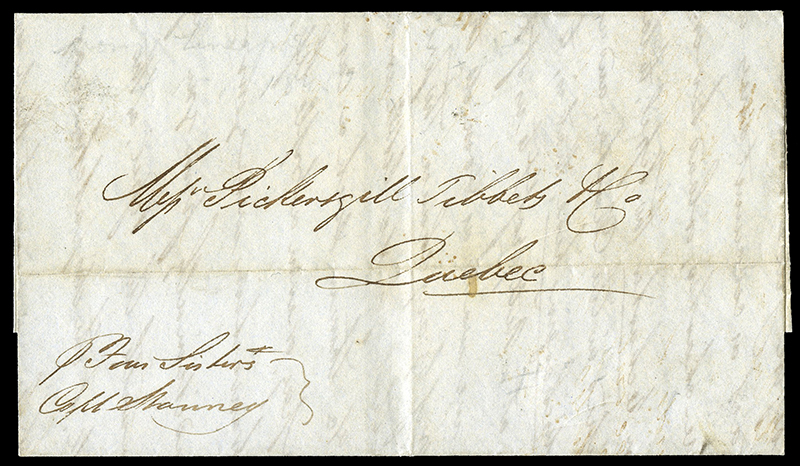 Messrs Pickersgill Tibbets & Co
Quebec
p Four Sisters
Capt